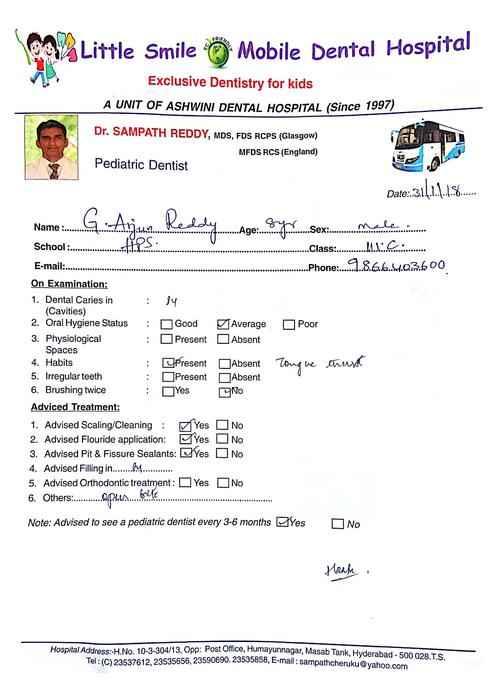 Little Smile Mobile Dental Hospital
Exclusive Dentistry for kids
A UNIT OF ASHWINI DENTAL HOSPITAL (Since 1997)
Dr. SAMPATH REDDY, MDS, FDS RCPS (Glasgow)
MFDS RCS (England)
Pediatric Dentist
Date: 31/1/18
Name: G. Arjun Reddy Age: 8yr Sex: male.
School: HPS. Class: III C.
E-mail: Phone: 9866403600
On Examination:
1. Dental Caries in (Cavities) :
2. Oral Hygiene Status : Good Average Poor
3. Physiological Spaces : Present Absent
4. Habits : Present Absent Tongue thrust
5. Irregular teeth : Present Absent
6. Brushing twice : Yes No
Adviced Treatment:
1. Advised Scaling/Cleaning : Yes No
2. Advised Flouride application: Yes No
3. Advised Pit & Fissure Sealants: Yes No
4. Advised Filling in
5. Advised Orthodontic treatment : Yes No
6. Others: open bite
Note: Advised to see a pediatric dentist every 3-6 months Yes No
Hospital Address:-H.No. 10-3-304/13, Opp: Post Office, Humayunnagar, Masab Tank, Hyderabad - 500 028.T.S.
Tel : (C) 23537612, 23535656, 23590690. 23535858, E-mail : sampathcheruku@yahoo.com